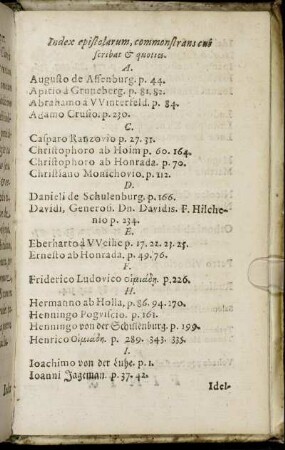 Index epistolarum, commonstrans cui
scribat & quoties.
A.
Augusto de Assenburg. p. 44.
Apitio à Gruneberg. p. 81. 82.
Abrahamo à VVinterfeld. p. 84.
Adamo Crusio. p. 230.
C.
Casparo Ranzovio p. 27. 31.
Christophoro ab Hoim p. 60. 164.
Christophoro ab Honrada. p. 70.
Christiano Monichovio, p. 112.
D.
Danieli de Schulenburg. p. 166.
Davidi, Generosi. Dn. Davidis. F. Hilche-
nio p. 234.
E.
Eberharto à VVeihe p. 17. 21. 23. 25.
Ernesto ab Honrada, p. 49. 76.
F.
Friderico Ludovico p. 226.
H.
Hermanno ab Holla, p. 86. 94. 170.
Henningo Pogviscio. p. 161.
Henningo von der Schulenburg. p. 199.
Henrico p. 289. 343. 335.
I.
Ioachimo von der Luhe. p. 1.
Ioanni Jageman. p. 37. 42.
Idel-